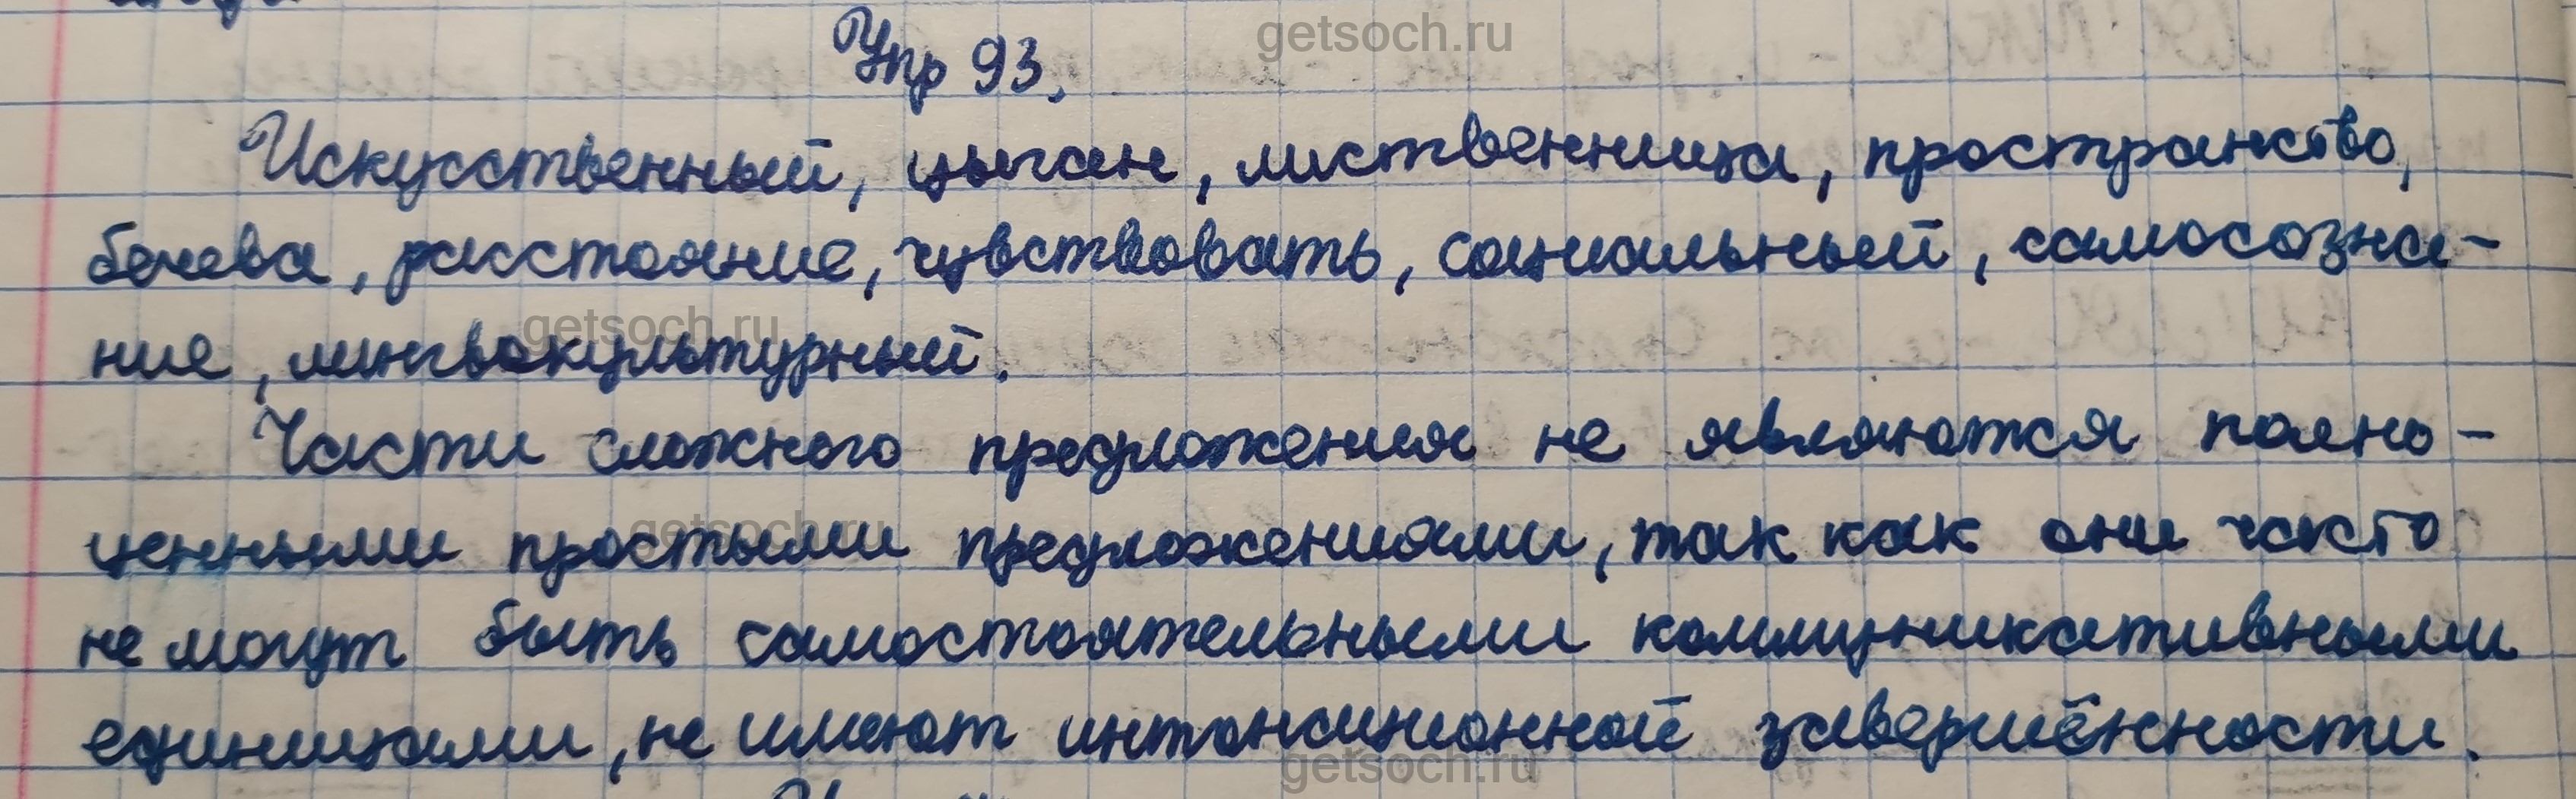 getsoch.ru
Упр 93.
Искусственный, цыган, лиственница, пространство,
бечева, расстояние, чувствовать, социальный, самосозна-
getsoch.ru
ние, лингвокультурный.
Части сложного предложения не являются полно-
getsoch.ru
ценными простыми предложениями, так как они часто
не могут быть самостоятельными коммуникативными
единицами, не имеют интонационной завершённости.
getsoch.ru